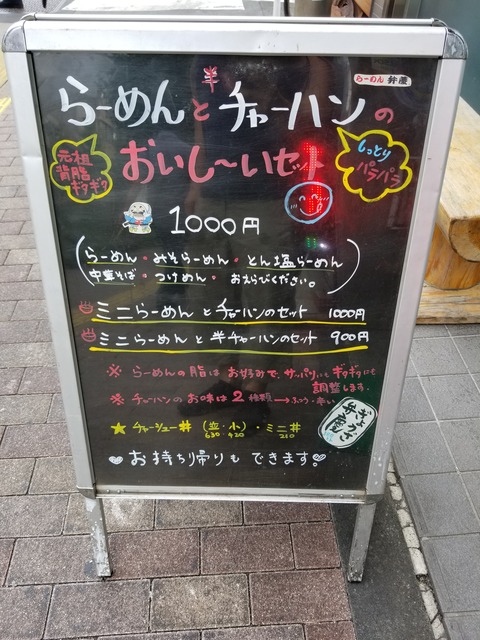 らーめん 弁慶
らーめんと半チャーハンの
おいし〜いセット
元祖
背脂
ギタギタ
しっとり
パラパラ
1000円
(らーめん・みそらーめん・とん塩らーめん
中華そば・つけめん・おえらびください。)
ミニらーめんとチャーハンのセット 1000円
ミニらーめんと半チャーハンのセット 900円
※ らーめんの脂はお好みで、サッパリにもギタギタにも
調整します。
※ チャーハンのお味は2種類→ふつう・辛い
★ チャーシュー丼 (並・小)・ミニ丼
630 420 210
ぎょうざ
弁慶
お持ち帰りもできます!